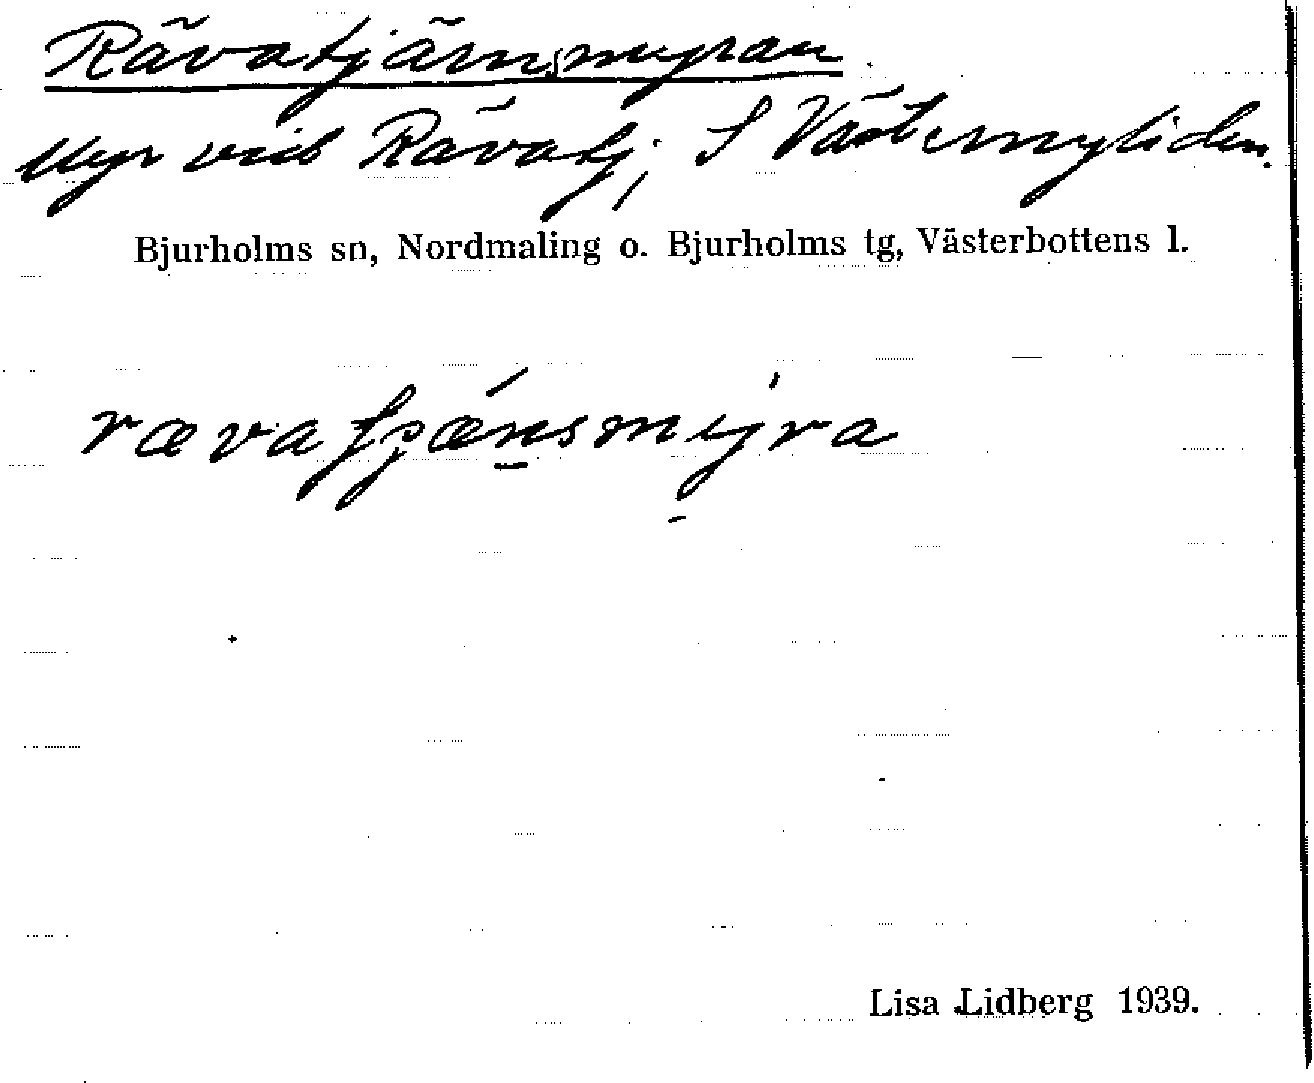 Rävatjärnsmyran
Myr vid Rävatj, S Västermyliden.
Bjurholms sn, Nordmaling o. Bjurholms tg, Västerbottens l.
Lisa Lidberg 1939.